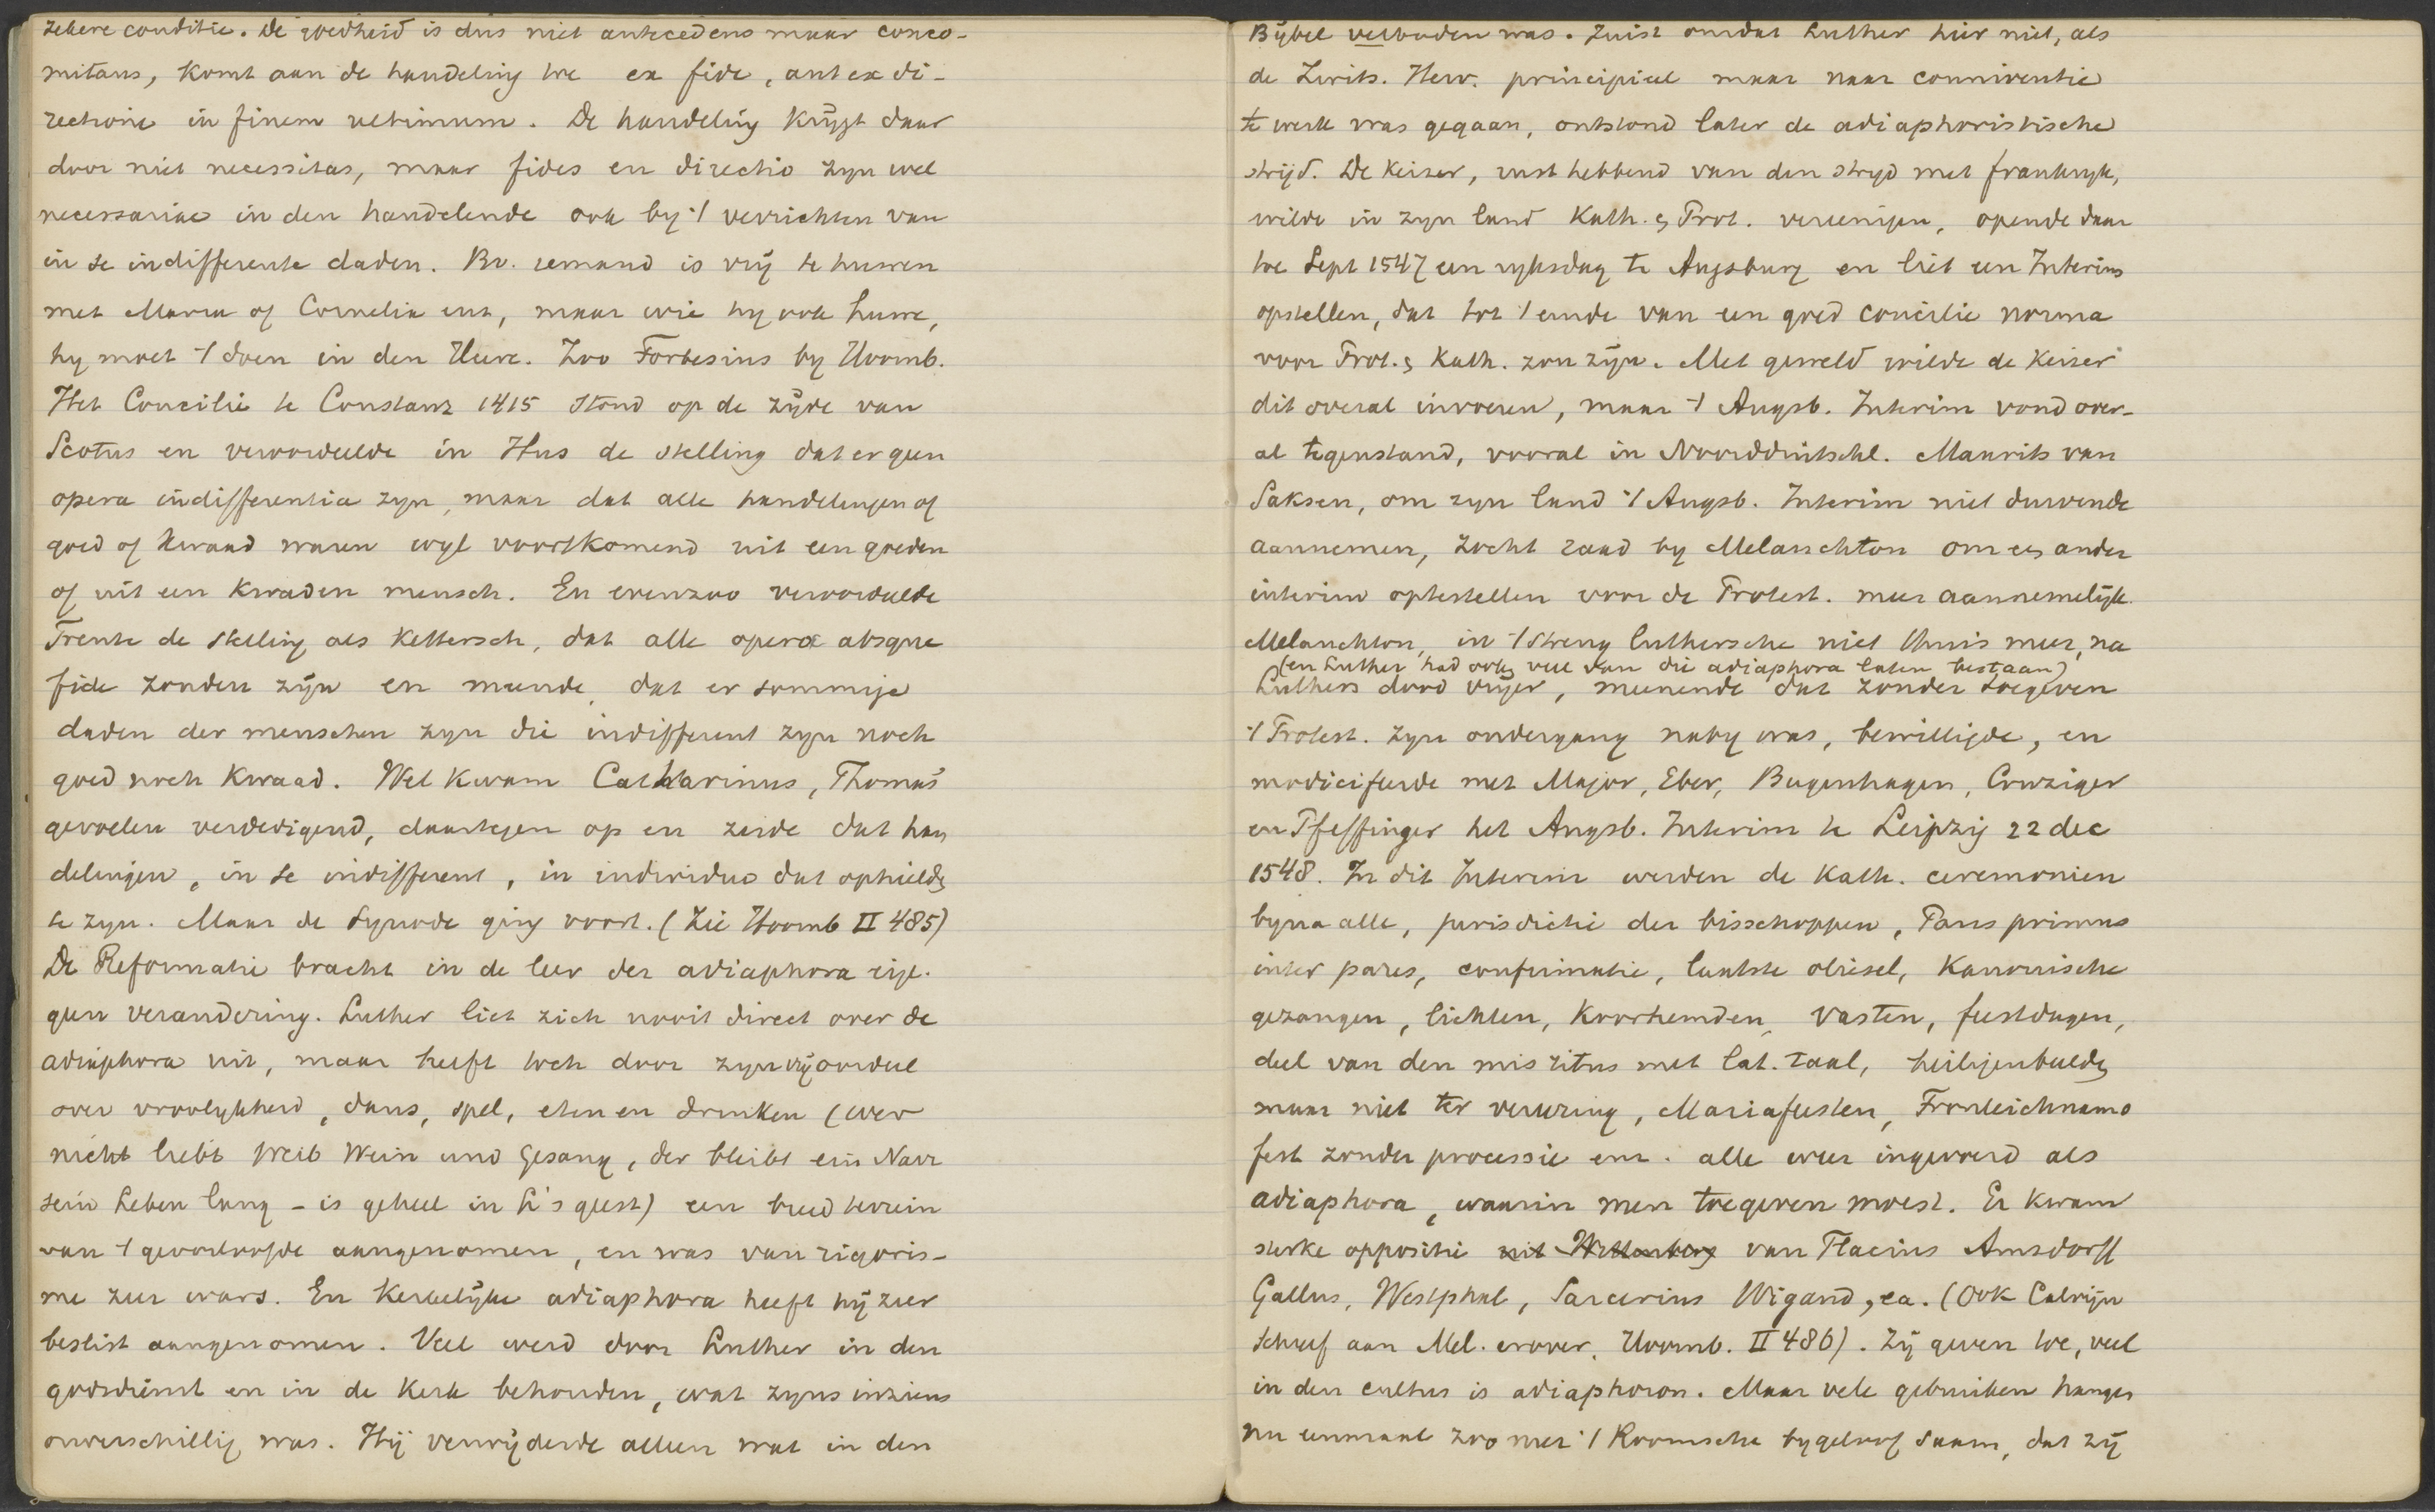 zekere conditie. De goedheid is dus niet antecedens maar conco-
mitans, komt aan de handeling toe ex fide, aut ex di-
rectione in finem ultimum. De handeling krijgt daar
door niet necessitas, maar fides en directio zyn wel
necessariae in den handelende ook by 't verrichten van
in se indifferente daden. Bv. iemand is vrij te huwen
met Maria of Cornelia enz, maar wie hy ook huwe,
hy moet 't doen in den Heere. Zoo Forbesius by Hoornb.
Het Concilie te Constanz 1415 stond op de zijde van
Scotus en veroordeelde in Hus de stelling dat er geen
opera indifferentia zyn, maar dat alle handelingen of
goed of kwaad waren wyl voortkomend uit een goeden
of uit een kwaden mensch. En evenzoo veroordeelde
Trente de stelling als kettersch, dat alle opera absque
fide zonden zijn en meende, dat er sommige
daden der menschen zyn die indifferent zyn noch
goed noch kwaad. Wel kwam Catharinus, Thomas'
gevoelen verdedigend, daartegen op en zeide dat han
delingen, in se indifferent, in individuo dat ophielden
te zyn. Maar de Synode ging voort. (Zie Hoornb II 485)
De Reformatie bracht in de leer der adiaphora eig.
geen verandering. Luther liet zich nooit direct over de
adiaphora uit, maar heeft toch door zyn vrij oordeel
over vroolykheid, dans, spel, eten en drinken (wer
nicht liebt Weib Wein und Gesang, der bleibt ein Narr
sein Leben lang - is geheel in L's geest) een breed terrein
van 't geoorloofde aangenomen, en was van rigoris-
me zeer wars. En Kerkelijke adiaphora heeft hij zeer
beslist aangenomen. Veel werd door Luther in den
godsdienst en in de Kerk behouden, wat zyns inziens
onverschillig was. Hij verwijderde alleen wat in den
Bijbel verboden was. Juist omdat Luther hier niet, als
de Zwits. Herv. principieel maar naar conniventie
te werk was gegaan, ontstond later de adiaphoristische
strijd. De Keizer, rust hebbend van den stryd met Frankryk,
wilde in zyn land Kath. & Prot. vereenigen, opende daar
toe Sept 1547 een ryksdag te Augsburg en liet een Interim
opstellen, dat tot 't einde van een goed concilie norma
voor Prot. & Kath. zou zijn. Met geweld wilde de Keizer
dit overal invoeren, maar 't Augsb. Interim vond over-
al tegenstand, vooral in Noordduitschl. Maurits van
Saksen, om zyn land 't Augsb. Interim niet durvende
aannemen, zocht raad by Melanchton om een ander
interim optestellen voor de Protest. meer aannemelijk.
Melanchton, in 't streng luthersche niet thuis meer, na
(en Luther had ook veel van die adiaphora laten bestaan)
Luthers dood vrijer, meenende dat zonder toegeven
't Protest. zyn ondergang naby was, bewilligde, en
modicifeerde met Major, Eber, Bugenhagen, Cruziger
en Pfeffinger het Augsb. Interim te Leipzig 22 dec
1548. In dit Interim werden de Kath. ceremonien
byna alle, jurisdictie der bisschoppen, Paus primus
inter pares, confirmatie, laatste oliesel, Kanonische
gezangen, lichten, Koorhemden, vasten, feestdagen,
deel van den mis ritus met lat. taal, heiligenbeelden
maar niet ter vereering, Mariafeesten, Fronleichnams
fest zonder processie enz. alle weer ingevoerd als
adiaphora, waarin men toegeven moest. Er kwam
sterke oppositie uit Wittenberg van Flacius Amsdorff
Gallus, Westphal, Sarcerius Wigand, ea. (Ook Calvijn
schreef aan Mel. erover. Hoornb. II 486). Zij geven toe, veel
in den cultus is adiaphoron. Maar vele gebruiken hangen
nu eenmaal zoo met 't Roomsche bygeloof saam, dat zij